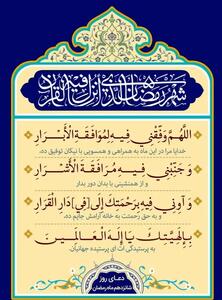 شهر رمضان الذی انزل فیه القرآن
اللَّهُمَّ وَفِّقْنِي فِيهِ لِمُوَافَقَةِ الْأَبْرَارِ
خدایا مرا در این ماه به همراهی و همسویی با نیکان توفیق ده،
وَ جَنِّبْنِي فِيهِ مُرَافَقَةَ الْأَشْرَارِ
و از همنشینی با بدان دور بدار
وَ آوِنِي فِيهِ بِرَحْمَتِكَ إِلَى [فِي] دَارِ الْقَرَارِ
و به حق رحمتت به خانه آرامش جایم ده،
بِإِلَهِيَّتِكَ يَا إِلَهَ الْعَالَمِينَ
به پرستیدگی ات ای پرستیده جهانیان
دعای روز
شانزدهم ماه رمضان